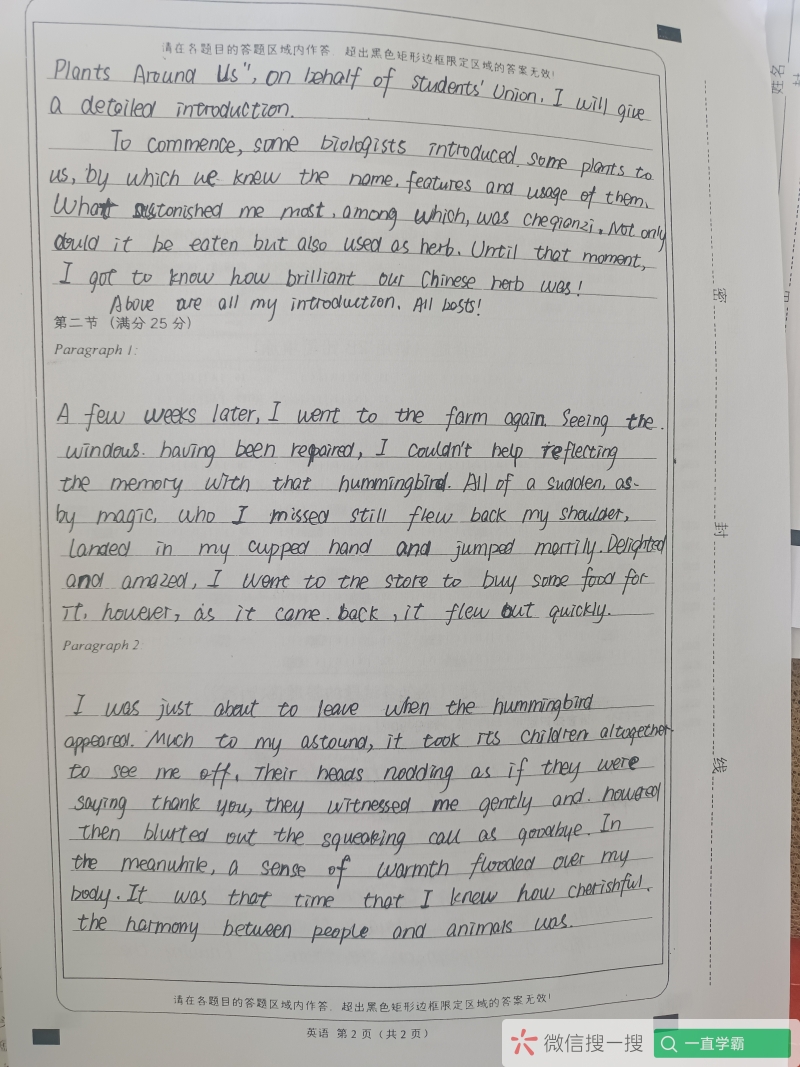 请在各题目的答题区域内作答，超出黑色矩形边框限定区域的答案无效！
Plants Around Us", on behalf of students' Union. I will give
a detailed introduction.
To commence, some biologists introduced some plants to
us, by which we knew the name, features and usage of them.
What astonished me most, among which, was cheqianzi. Not only
could it be eaten but also used as herb. Until that moment,
I got to know how brilliant our Chinese herb was!
Above are all my introduction. All bests!
第二节 (满分 25 分)
Paragraph 1:
A few weeks later, I went to the farm again. Seeing the
windows having been repaired, I couldn't help reflecting
the memory with that hummingbird. All of a sudden, as
by magic, who I missed still flew back my shoulder,
landed in my cupped hand and jumped merrily. Delighted
and amazed, I went to the store to buy some food for
it, however, as it came back, it flew out quickly.
Paragraph 2:
I was just about to leave when the hummingbird
appeared. Much to my astound, it took its children altogether
to see me off. Their heads nodding as if they were
saying thank you, they witnessed me gently and howered
then blurted out the squeaking call as goodbye. In
the meanwhile, a sense of warmth flooded over my
body. It was that time that I knew how cherishful
the harmony between people and animals was.
请在各题目的答题区域内作答，超出黑色矩形边框限定区域的答案无效！
英语 第 2 页（共 2 页）
密
封
线
姓名
微信搜一搜
一直学霸